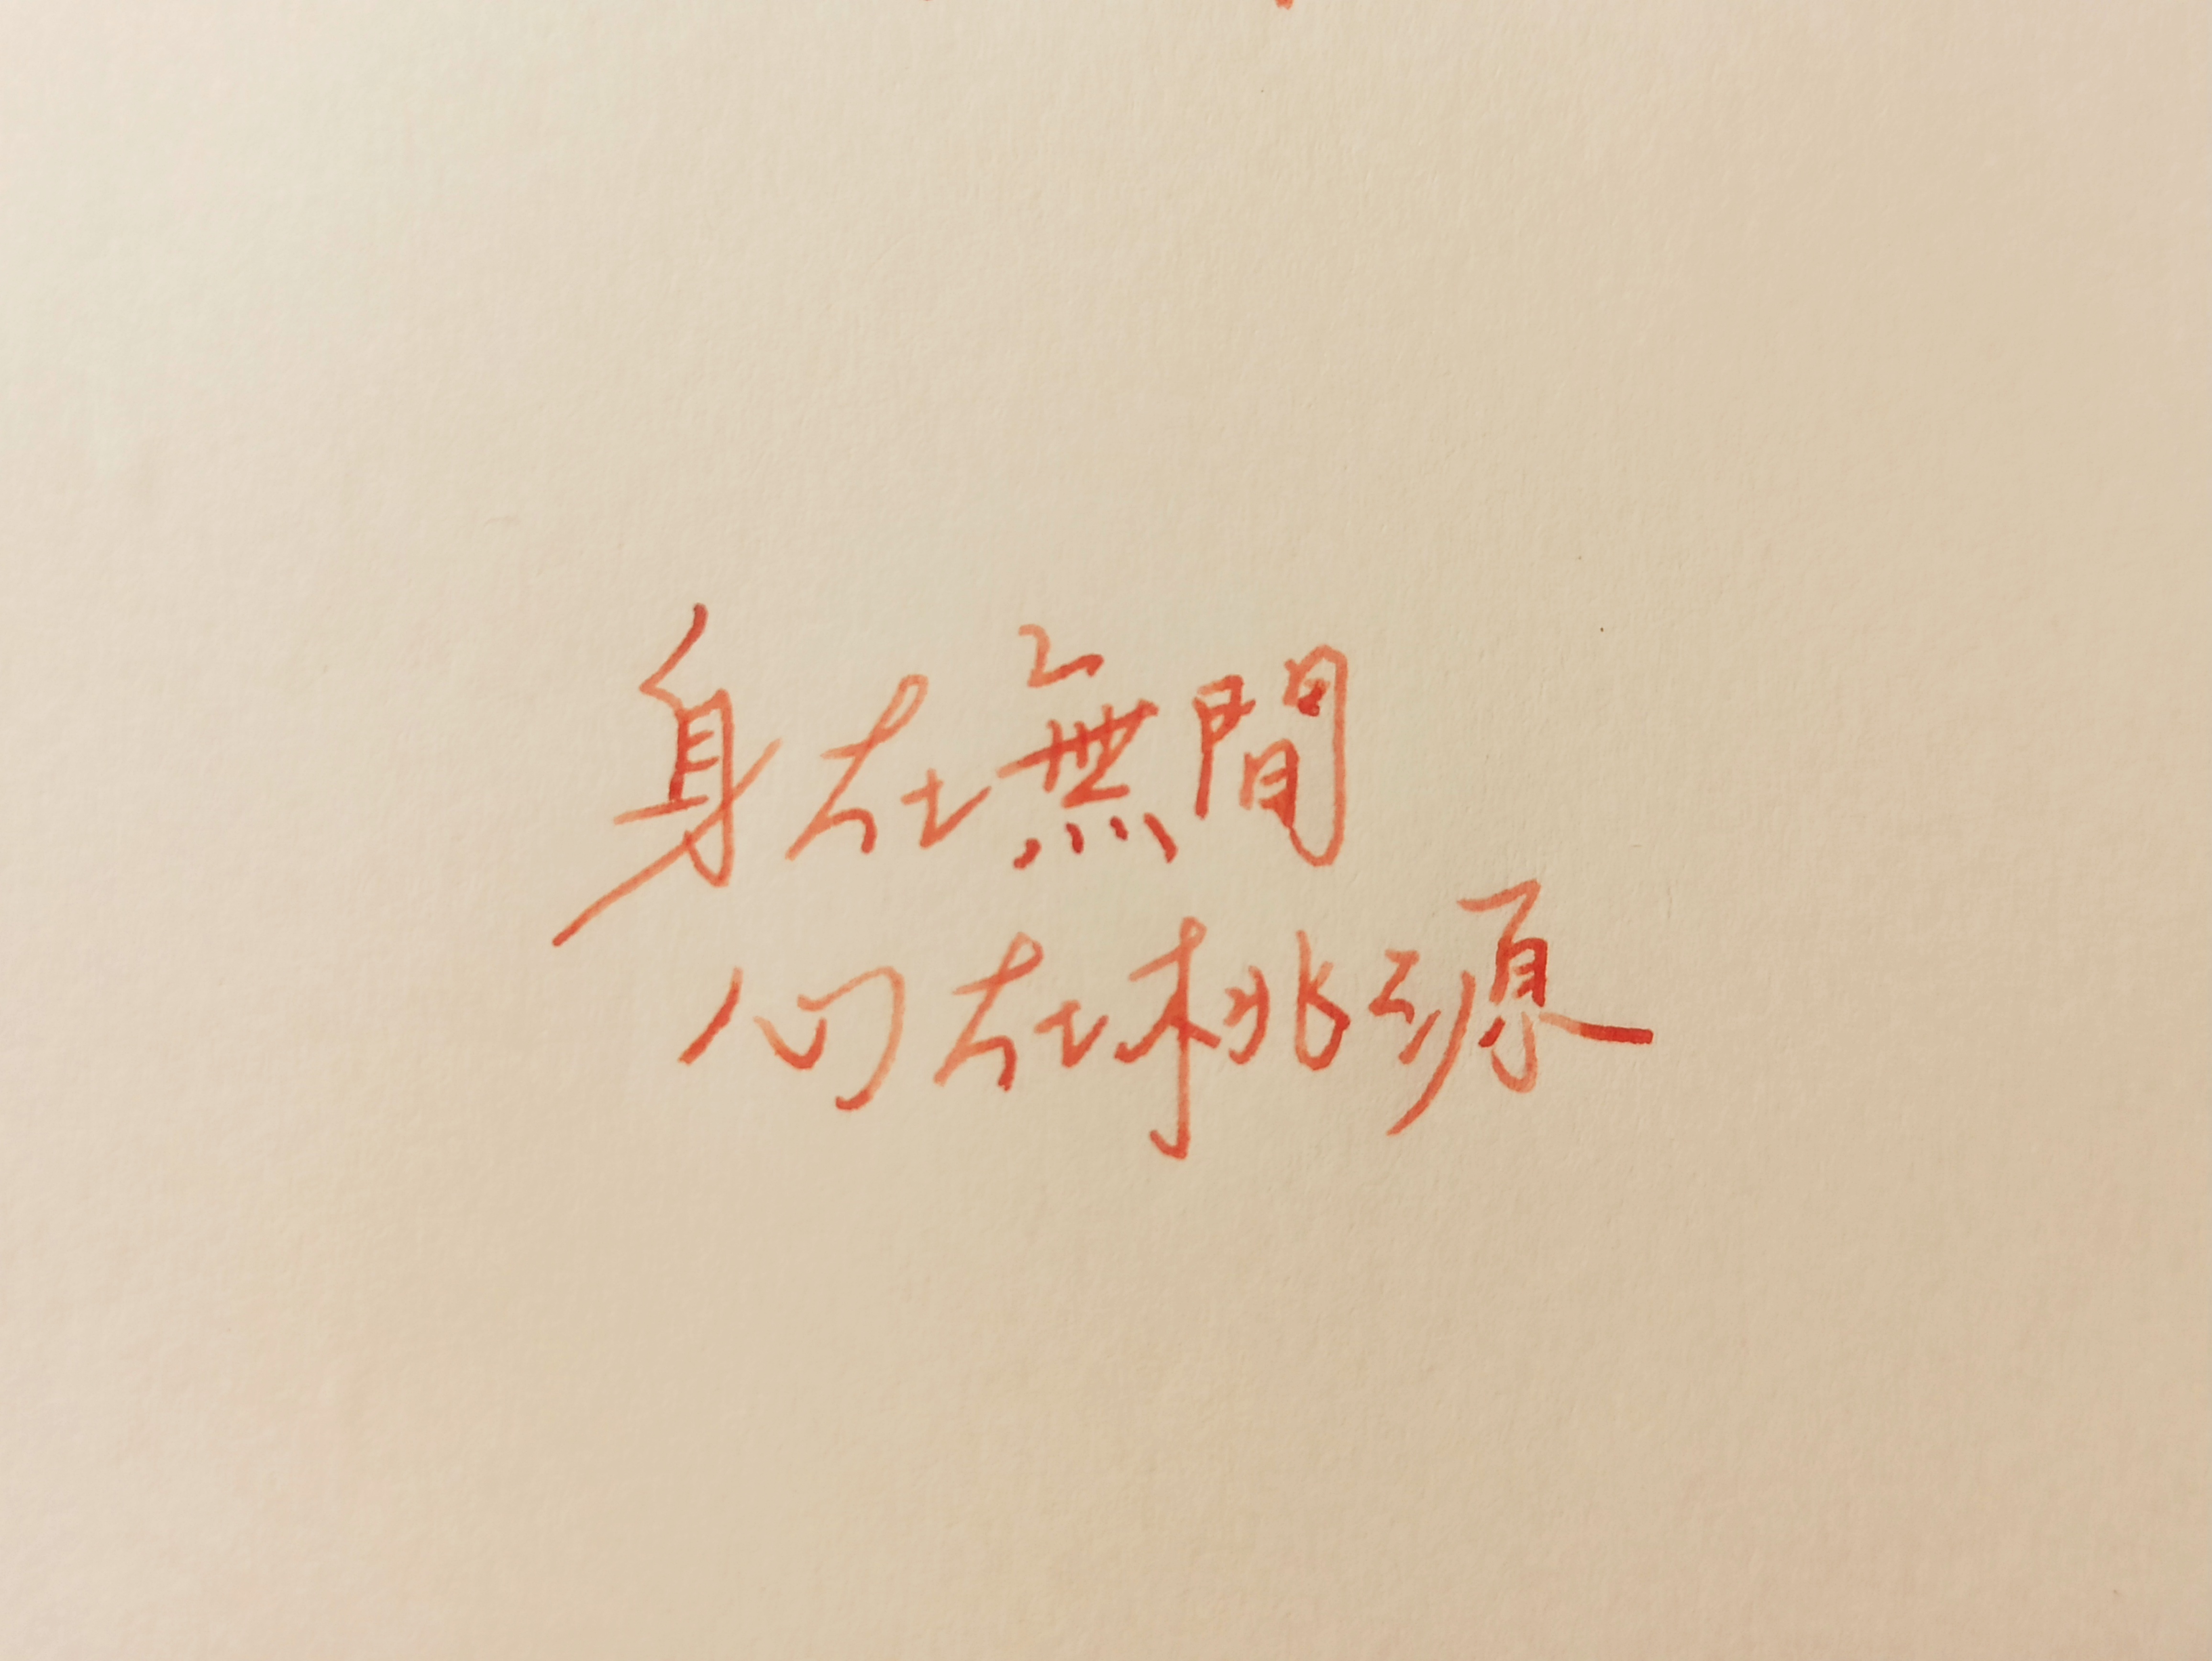 身在無間
心在桃源